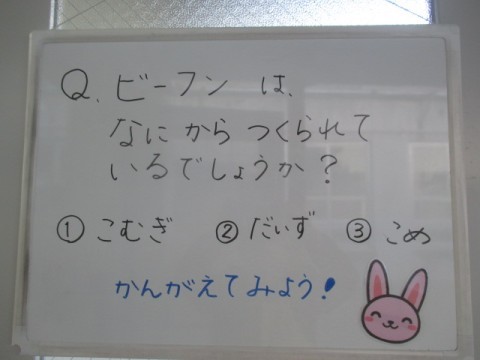 Q. ビーフン は、
なに から つくられて
いるでしょうか?
① こむぎ ② だいず ③ こめ
かんがえてみよう!